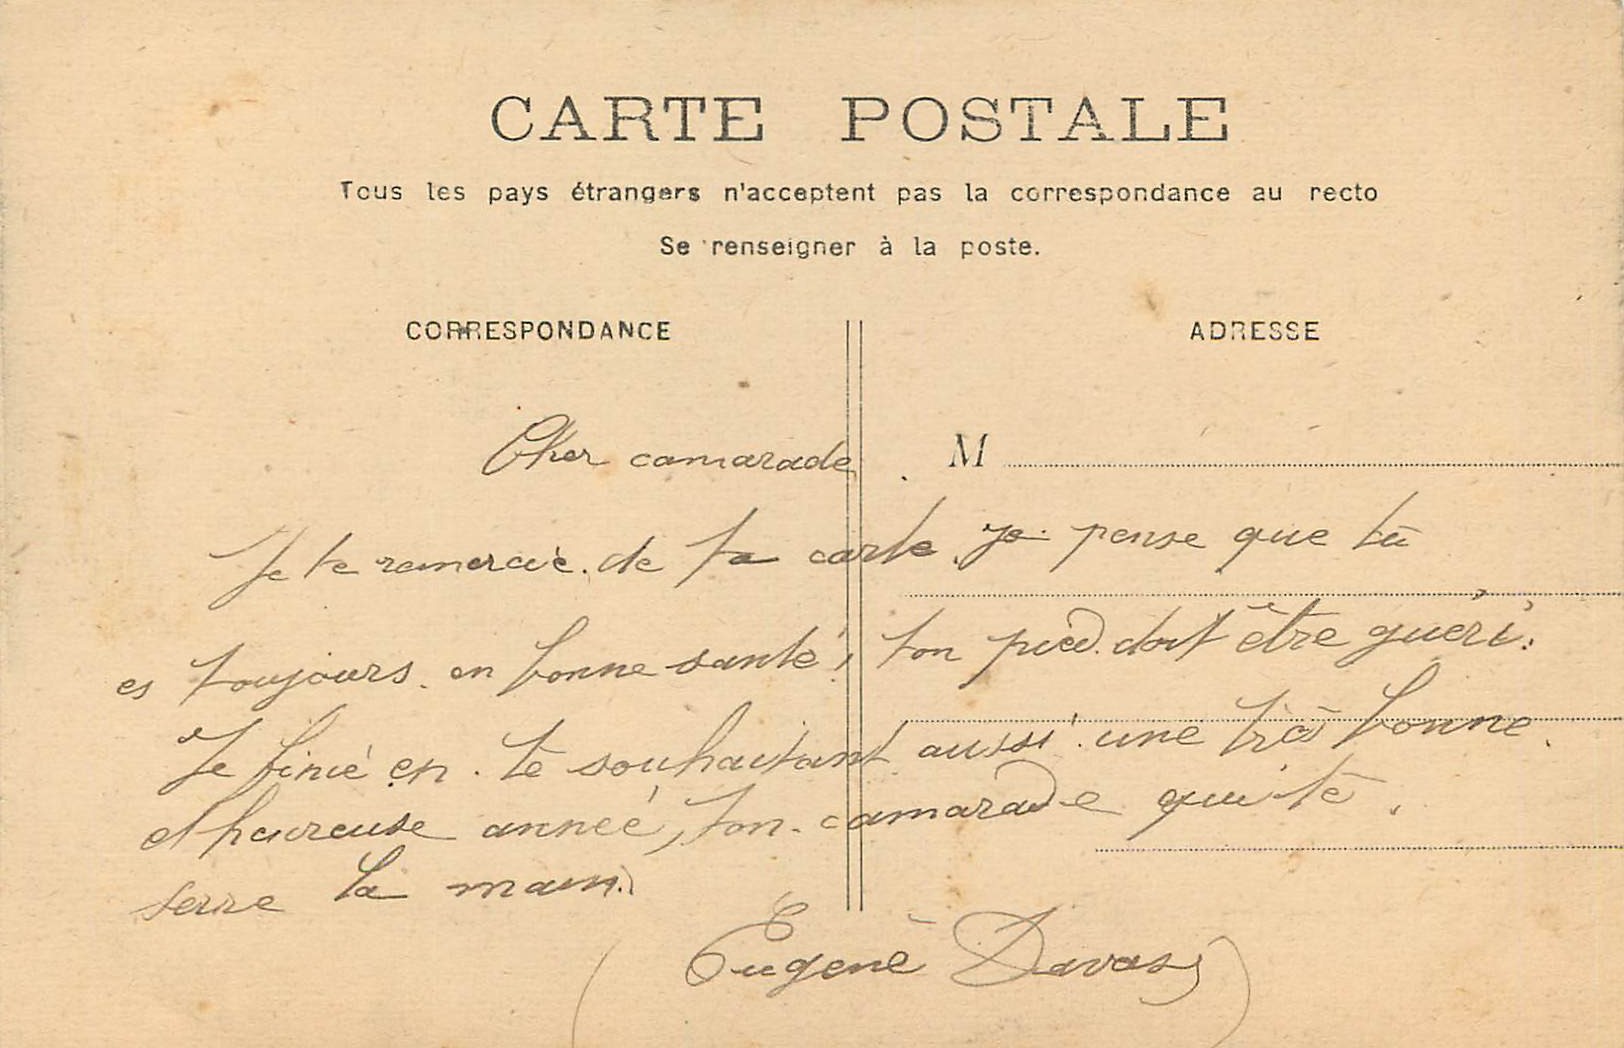 CARTE POSTALE
Tous les pays étrangers n'acceptent pas la correspondance au recto
Se renseigner à la poste.
CORRESPONDANCE
ADRESSE
M
Cher camarade
Je te remercie. de ta carte je pense que tu
es toujours en bonne santé, ton pied doit être guéri.
Je finié en te souhaitant aussi une très bonne
et heureuse année, ton camarade qui te
serre la main.
Eugène Davas